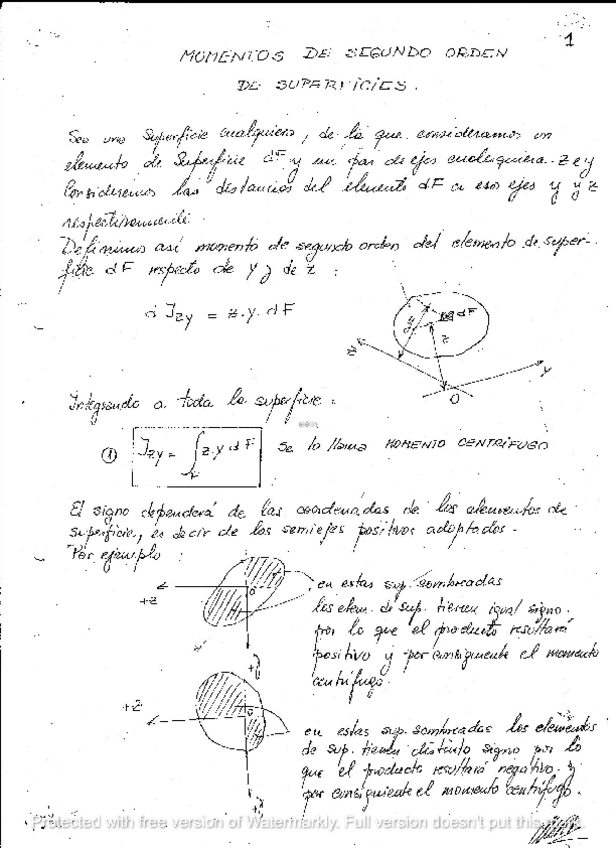 1
MOMENTOS DE SEGUNDO ORDEN
DE SUPERFICIES.
Sea una superficie cualquiera, de la que consideramos un
elemento de superficie dF y un par de ejes cualesquiera z e y
Consideremos las distancias del elemento dF a esos ejes y y z
respectivamente.
Definimos así momento de segundo orden del elemento de super-
ficie dF respecto de y y de z :
d Jzy = z.y.dF
dF
y
z
z
y
O
Integrando a toda la superficie :
① Jzy = ∫F z.y dF se lo llama MOMENTO CENTRÍFUGO
El signo dependerá de las coordenadas de los elementos de
superficie, es decir de los semiejes positivos adoptados.
Por ejemplo :
+z
O
+y
en estas sup. sombreadas
los elem. de sup. tienen igual signo.
por lo que el producto resultará
positivo y por consiguiente el momento
centrífugo.
+z
O
+y
en estas sup. sombreadas los elementos
de sup. tienen distinto signo por lo
que el producto resultará negativo. y
por consiguiente el momento centrífugo.
Protected with free version of Watermarkly. Full version doesn't put this mark.